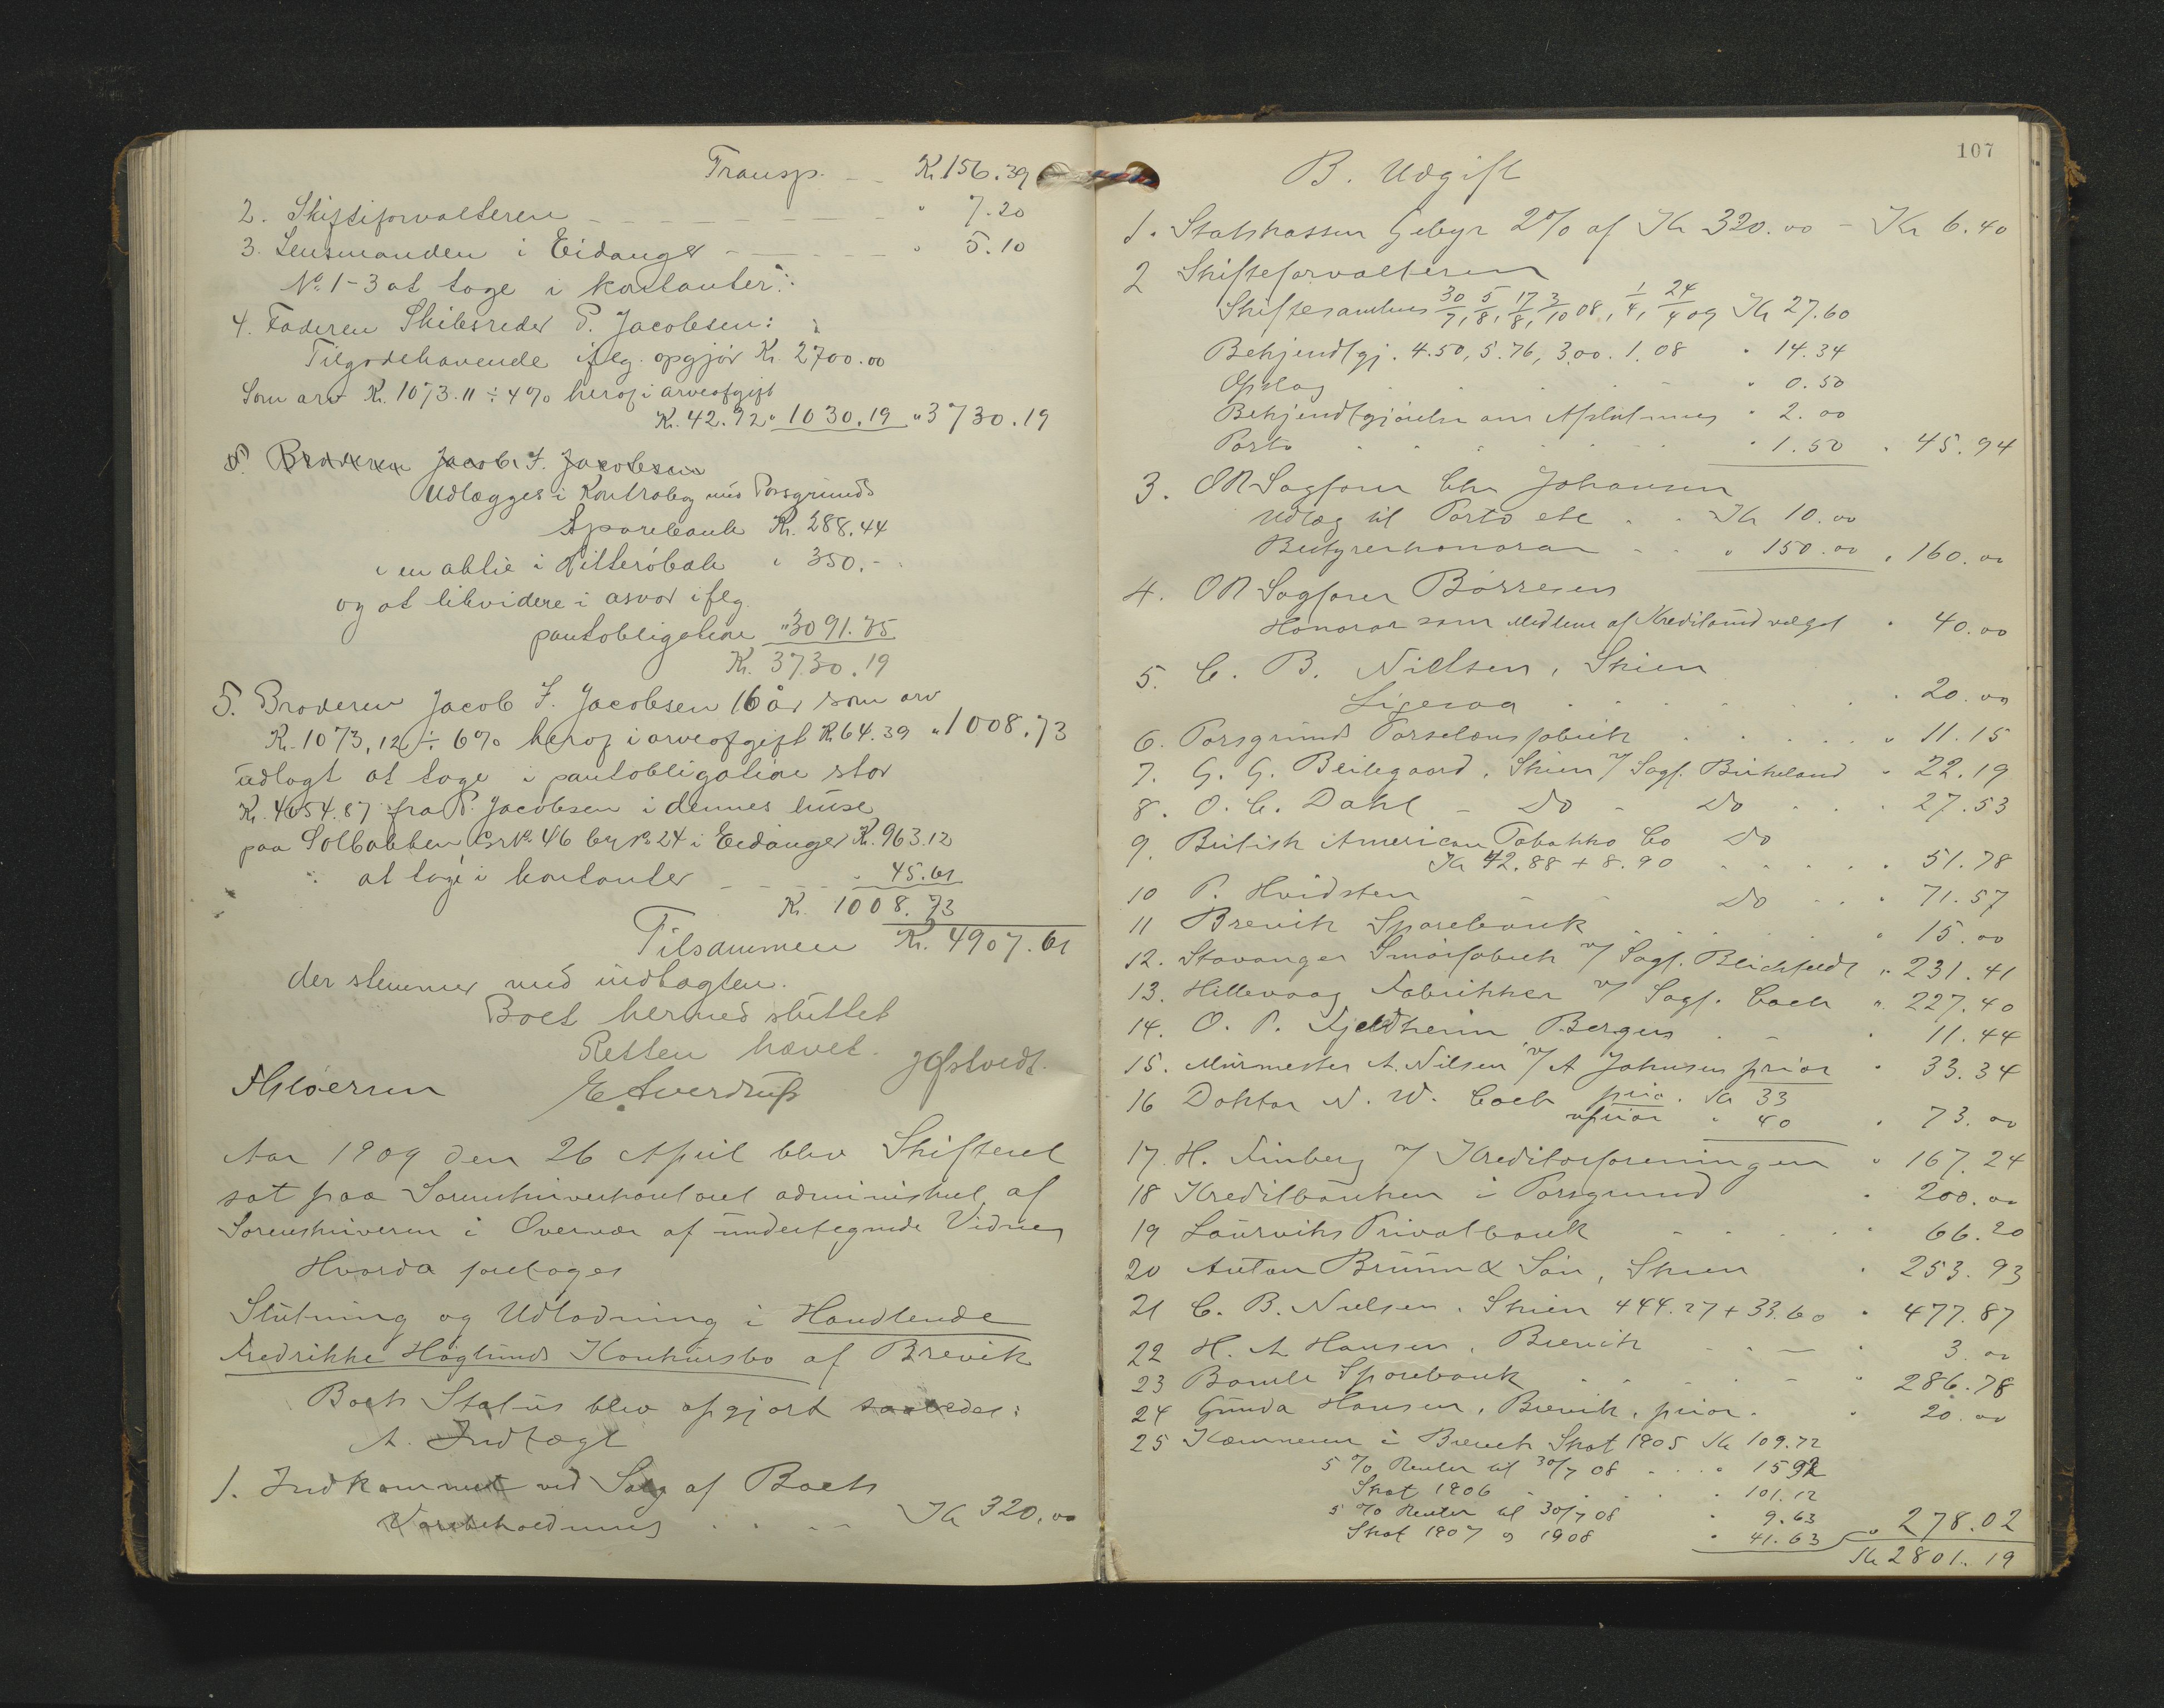 Transp. — — Kr. 156.39
2. Skifteforvalteren — — — — — — — " 7.20
3. Lensmanden i Eidanger — — — — — " 5.10
No. 1-3 at tage i kontanter.
4. Faderen Skibsreder P. Jacobsen:
Tilgodehavende iflg. opgjør Kr. 2700.00
Som arv Kr. 1073.11 ÷ 4% herof i arveafgift
Kr. 42.92 " 1030.19 " 3730.19
5. Broderen Jacob F. Jacobsen
Udlægges i Kontrabog med Porsgrunds
Sparebank Kr. 288.44
i en aktie i Hitterøbak " 350.-
og at likvidere i ansvar iflg.
pantobligation " 3091.75
Kr. 3730.19
5. Broderen Jacob F. Jacobsen 16 år som arv
Kr. 1073,12 ÷ 6% herof i arveafgift Kr 64.39 " 1008.73
udlagt at tage i pantobligation stor
Kr. 4654.87 fra P. Jacobsen i dennes huse
paa Solbakken Gr No. 46 br. No. 24 i Eidanger Kr. 963.12
at tage i kontanter — — — " 45.61
Kr. 1008.73
Tilsammen Kr. 4907.61
der stemmer med indtægten.
Boet hermed sluttet
Retten hævet.
E. Sverdrup
Aar 1909 den 26 April blev Skifteret
sat paa Sorenskriverkontoret administreret af
Sorenskriveren i Overvær af undertegnede Vidner
Hvorda foretoges
Slutning og Udlodning i Handlende
Fredrikke Höglunds Konkursbo af Brevik
Boets Status blev opgjort saaledes:
A. Indtægt
1. Indkommet ved Salg af Boets
Varebeholdning . . — — Kr 320.00
107
B. Udgift
1. Statskassen Gebyr 2% af Kr 320.00 — Kr 6.40
2 Skifteforvalteren
Skiftesamlinger 30/7, 5/8, 17/8, 3/10 08, 1/4, 24/4 09 Kr 27.60
Bekjendtgj. 4.50, 5.76, 3.00. 1.08 " 14.34
Opslag . . . . " 0.50
Bekjendtgjörelse om Afslutning " 2.00
Porto . . . . " 1.50 " 45.94
3. OR Sagfører Chr Johansen
Udlæg til Porto etc . . Kr 10.00
Bestyrerhonorar — . . " 150.00 " 160.00
4. OR Sagfører Börresen
Honorar som Medlem af Kreditorudvalget " 40.00
5. C. B. Nielsen, Skien
Ligesaa . . . . . " 20.00
6. Porsgrunds Porselænsfabrik . . . . " 11.15
7. G. G. Bliksgaard, Skien v/ Sagf. Birkeland " 22.19
8. O. C. Dahl — Do — Do . . " 27.53
9. British American Tobakko Co Do
Kr 42.88 + 8.90 . . . . " 51.78
10 P. Hvidsten — Do . . " 71.57
11 Brevik Sparebank . . . . " 15.00
12. Stavanger Smörfabrik v/ Sagf. Blichfeldt " 231.41
13. Hillevaag Fabrikker v/ Sagf. Coch " 227.40
14. O. P. Kjeldheim Bergen . . 11.44
15. Murmester A. Nilsen v/ A Johnsen prior " 33.34
16 Doktor N. W. Coch prior. Kr 33
uprior " 40 " 73.00
17. H. Finberg v/ Kreditorforeningen " 167.24
18 Kreditbanken i Porsgrund " 200.00
19 Laurviks Privatbank — . . " 66.20
20 Anton Bruun & Sön, Skien " 253.93
21 C. B. Nielsen, Skien 444.27 + 33.60 " 477.87
22 H. A Hansen, Brevik . . — " 3.00
23 Bamle Sparebank . . . " 286.78
24 Gunda Hansen, Brevik, prior. " 20.00
25 Kæmneren i Brevik Skat 1905 Kr 109.72
5 % Renter til 30/7 08 . . . " 15 92
Skat 1906 . . . . " 101.12
5 % Renter til 30/7 08 " 9.63
Skat 1907 og 1908 " 41.63 " 278.02
Kr 2801.19